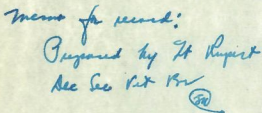 Memo for record:
Prepared by Lt Rupert
Dec Sec Vit Br